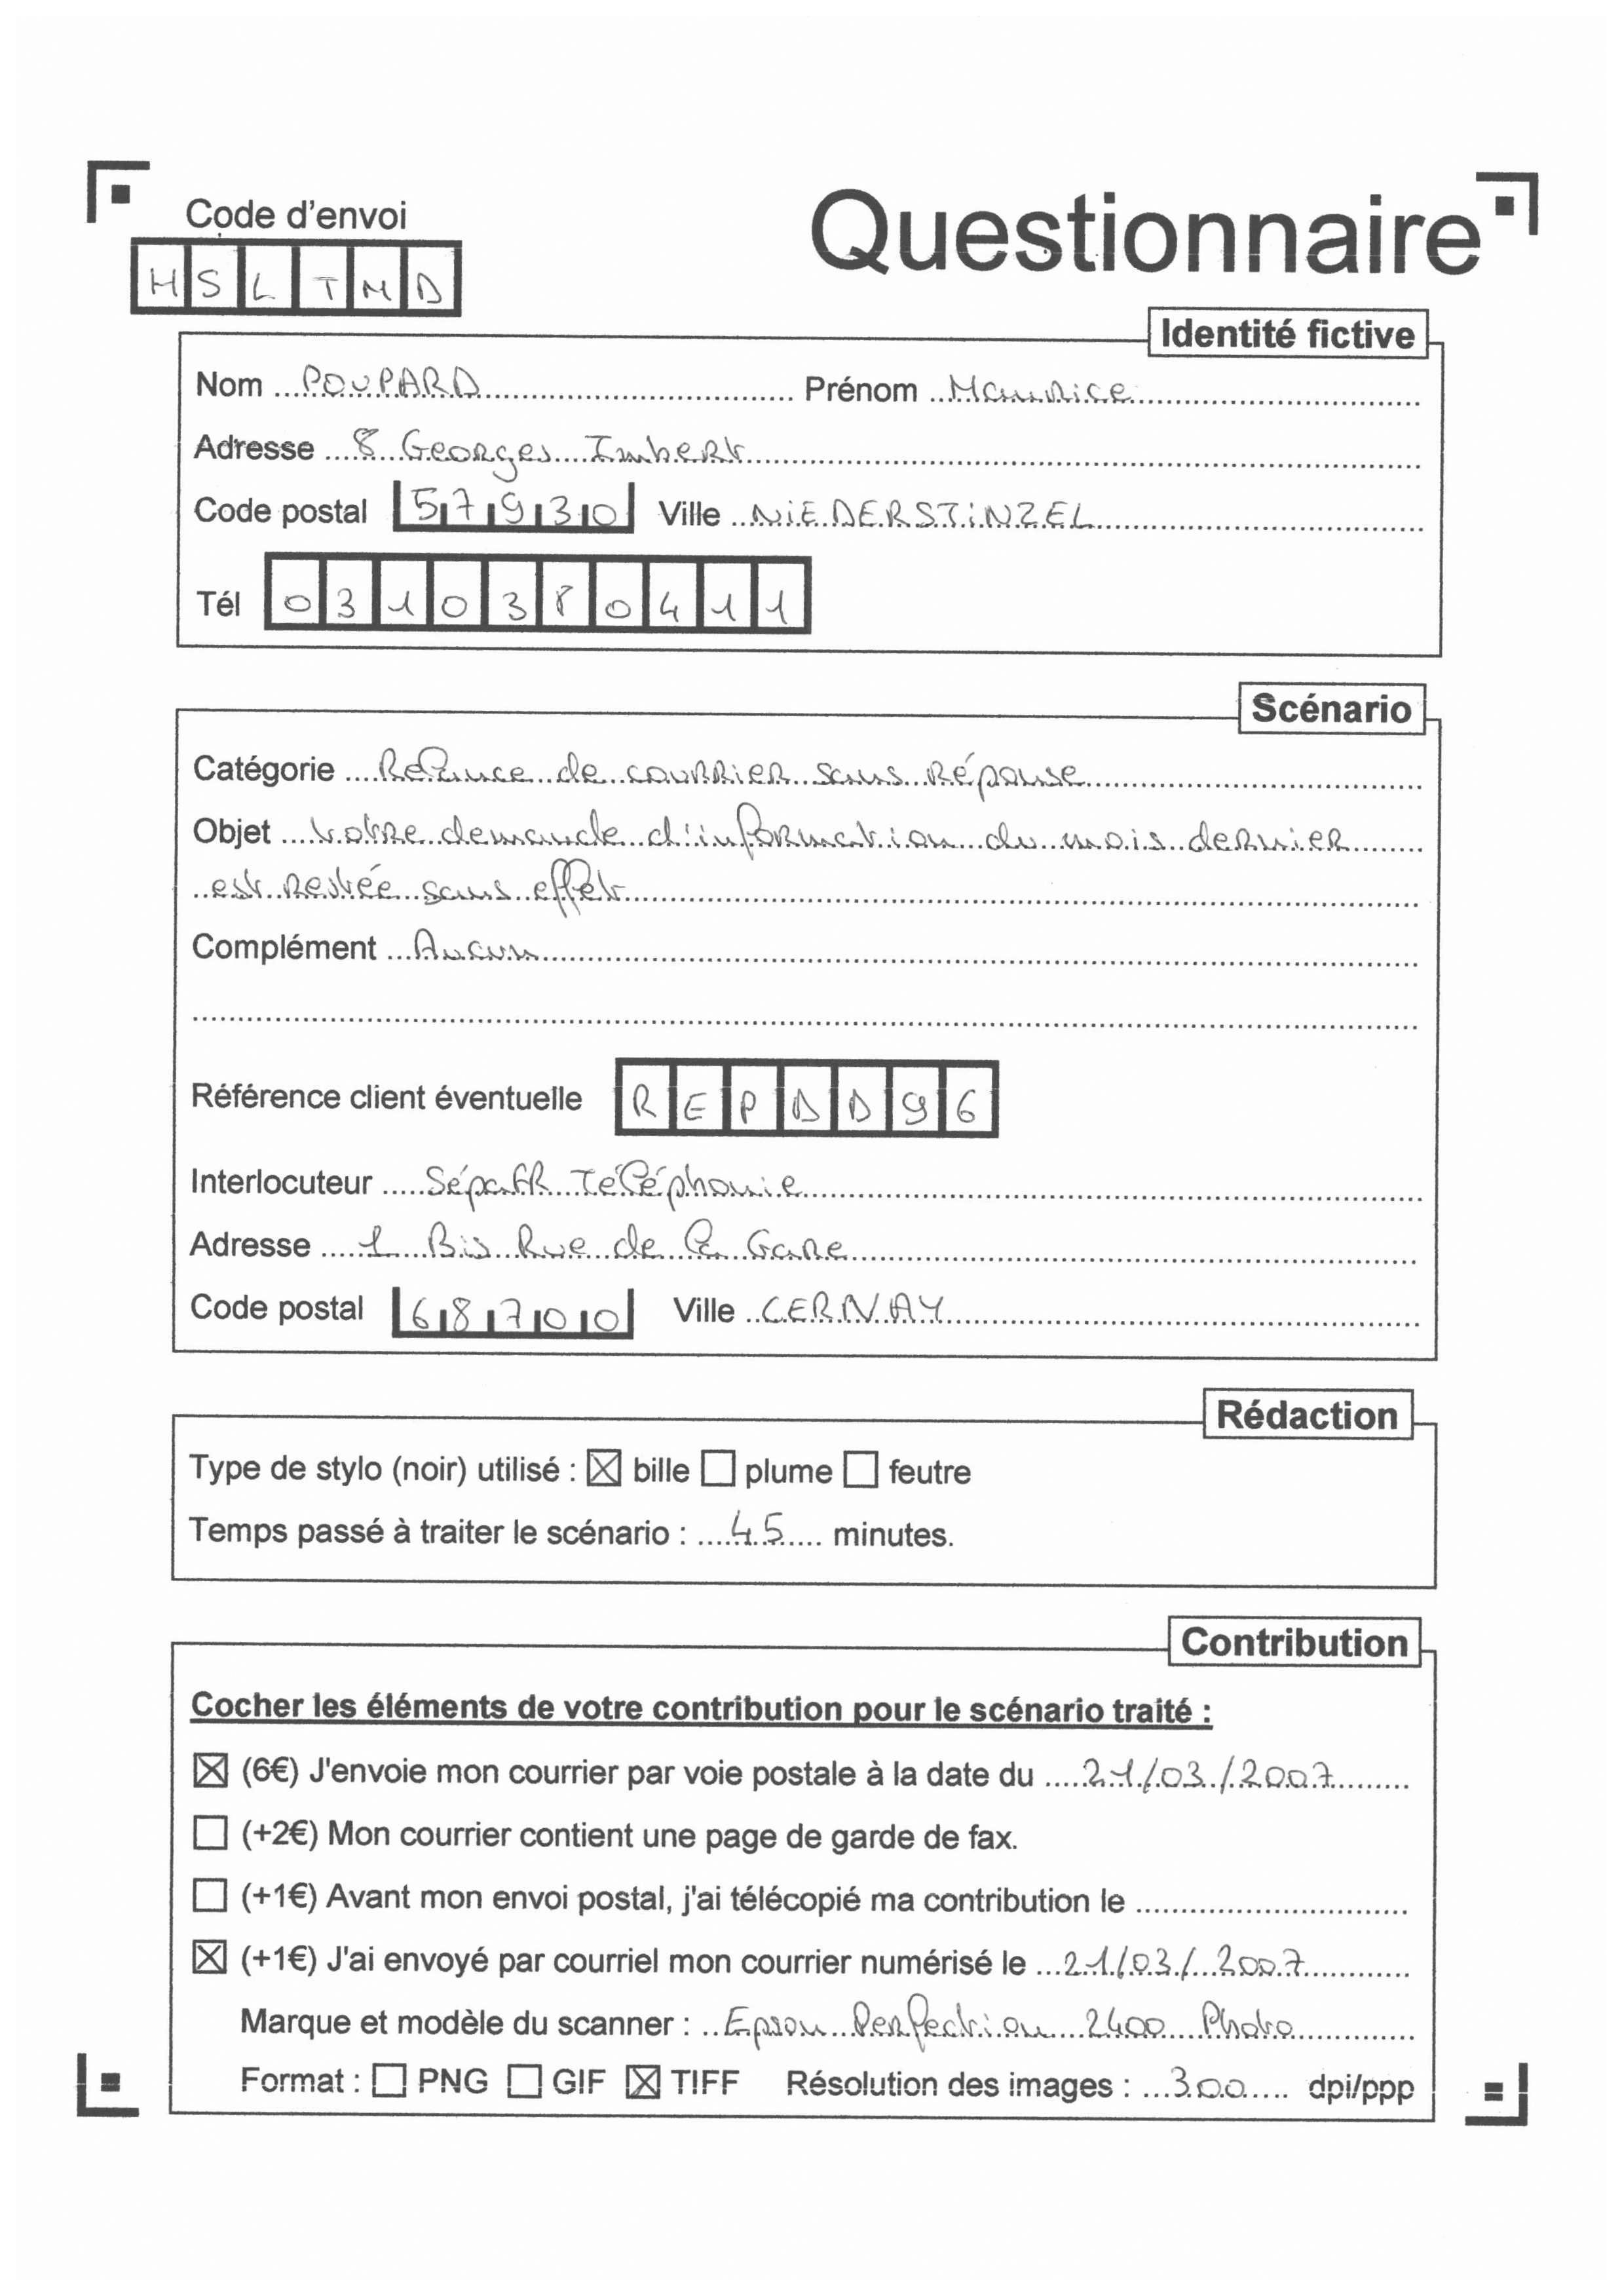 Code d'envoi
Questionnaire
HSLTMD
Identité fictive
Nom POUPARD Prénom Maurice
Adresse 8 Georges Imbert
Code postal 57930 Ville NiEDERSTiNZEL
Tél 0310380411
Scénario
Catégorie Relance de courrier sans réponse
Objet Votre demande d'information du mois dernier
est restée sans effet
Complément Aucun
Référence client éventuelle REPDD96
Interlocuteur Téléphonie
Adresse 1 Bis Rue de la Gare
Code postal 68700 Ville CERNAY
Rédaction
Type de stylo (noir) utilisé : ☒ bille ☐ plume ☐ feutre
Temps passé à traiter le scénario : 45 minutes.
Contribution
Cocher les éléments de votre contribution pour le scénario traité :
☒ (6€) J'envoie mon courrier par voie postale à la date du 21/03/2007
☐ (+2€) Mon courrier contient une page de garde de fax.
☐ (+1€) Avant mon envoi postal, j'ai télécopié ma contribution le
☒ (+1€) J'ai envoyé par courriel mon courrier numérisé le 21/03/2007
Marque et modèle du scanner : Epson Perfection 2400 Photo
Format : ☐ PNG ☐ GIF ☒ TIFF Résolution des images : 300 dpi/ppp